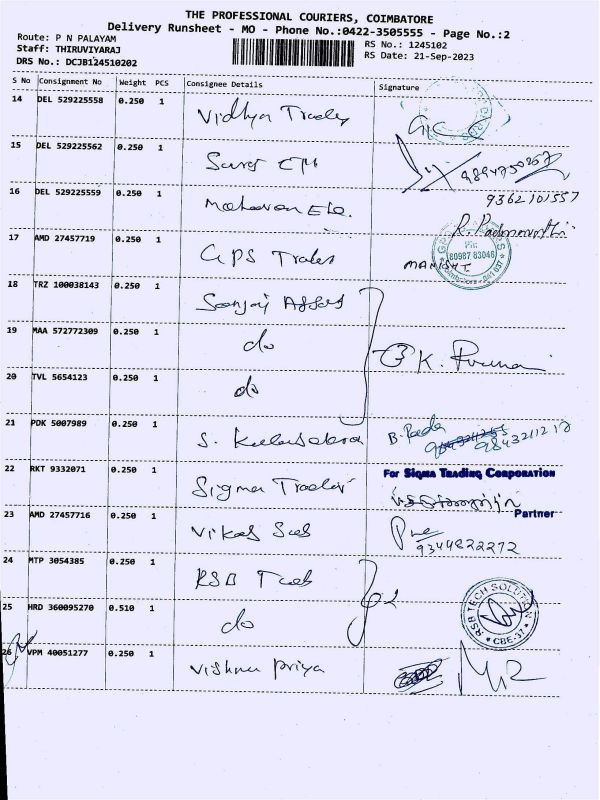 THE PROFESSIONAL COURIERS, COIMBATORE
Delivery Runsheet - MO - Phone No.:0422-3505555 - Page No.:2
Route: P N PALAYAM
RS No.: 1245102
Staff: THIRUVIYARAJ
RS Date: 21-Sep-2023
DRS No.: DCJB124510202
S No Consignment No Weight PCS Consignee Details Signature
14 DEL 529225558 0.250 1 Vidhya
15 DEL 529225562 0.250 1 9894750267
16 DEL 529225559 0.250 1 9362101557
R. Padmavathi
17 AMD 27457719 0.250 1 GPS Trades MANISHI
Ph: 80987 83046
18 TRZ 100038143 0.250 1 Sanjay
19 MAA 572772309 0.250 1 do K.
20 TVL 5654123 0.250 1 do
21 PDK 5007989 0.250 1 S. B. 9843211217
22 RKT 9332071 0.250 1 Sigma For SIGMA TRADING CORPORATION
Partner
23 AMD 27457716 0.250 1 Vikas 9344822272
24 MTP 3054385 0.250 1 RSB
25 HRD 360095270 0.510 1 do RSB TECH SOLUTION CBE-37
26 VPM 40051277 0.250 1 Vishnu priya